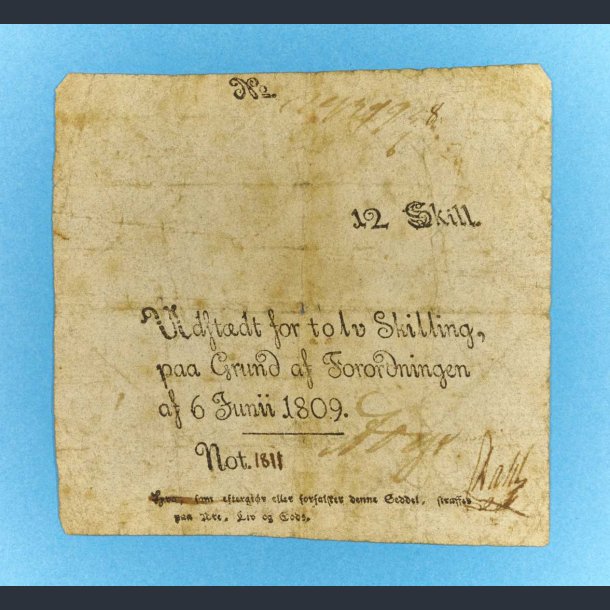 No.
12 Skill.
Udstædt for tolv Skilling,
paa Grund af Forordningen
af 6 Junii 1809.
Not. 1811
som eftergiør eller forfalsker denne Seddel, straffes
paa Ære, Liv og Gods.